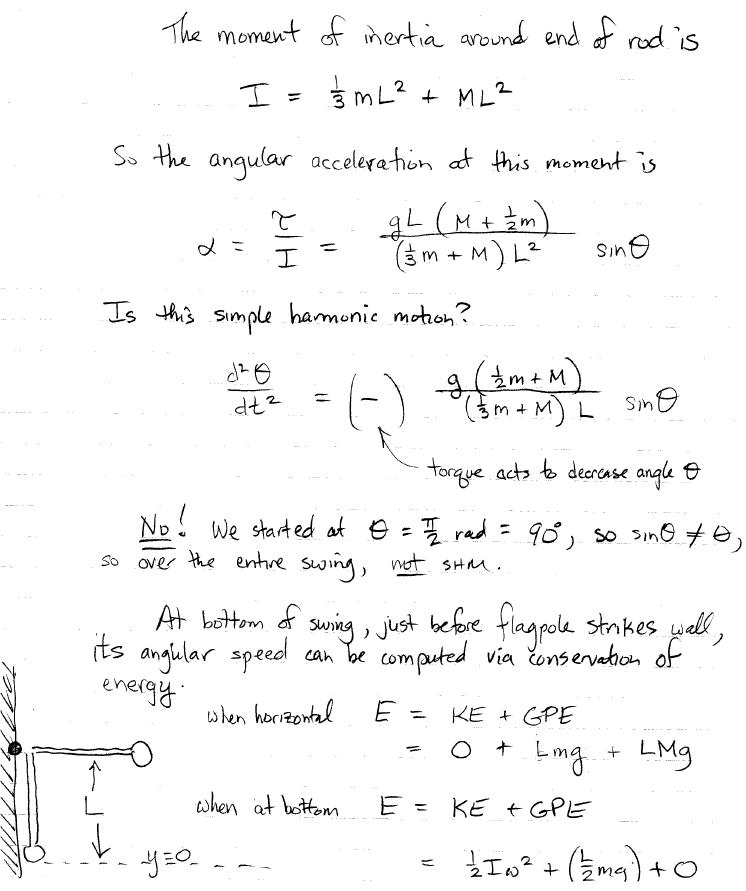 The moment of inertia around end of rod is
I = 1/3 mL² + ML²
So the angular acceleration at this moment is
α = τ/I = gL (M + 1/2 m) / (1/3 m + M) L² sinθ
Is this simple harmonic motion?
d²θ/dt² = (-) g (1/2 m + M) / (1/3 m + M) L sinθ
torque acts to decrease angle θ
No! We started at θ = π/2 rad = 90°, so sinθ ≠ θ,
so over the entire swing, not SHM.
At bottom of swing, just before flagpole strikes wall,
its angular speed can be computed via conservation of
energy.
when horizontal E = KE + GPE
= 0 + Lmg + LMg
when at bottom E = KE + GPE
L
y=0
= 1/2 Iω² + (L/2 mg) + 0